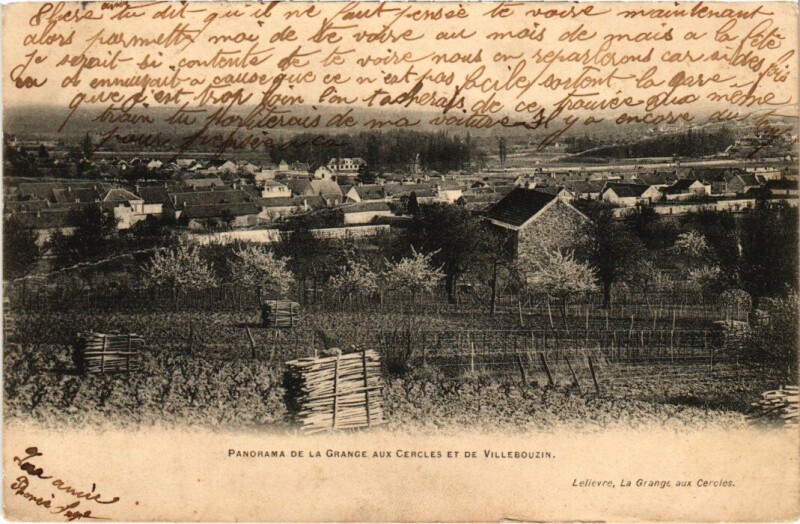 Chere amie tu dit qu'il ne faut pensé te voire maintenant
alors permetté moi de te voire au mois de mais a la fête
je serait si contente de te voire nous en reparlerons car si des fois
tu d ennuiyait a cause que ce n'est pas facile sortont la gare
que c'est trop loin l'on tacherais de ce trouvée aux même
train tu porterais de ma voiture il y a encore du
pour
PANORAMA DE LA GRANGE AUX CERCLES ET DE VILLEBOUZIN.
Lelievre, La Grange aux Cercles.
Ton amie